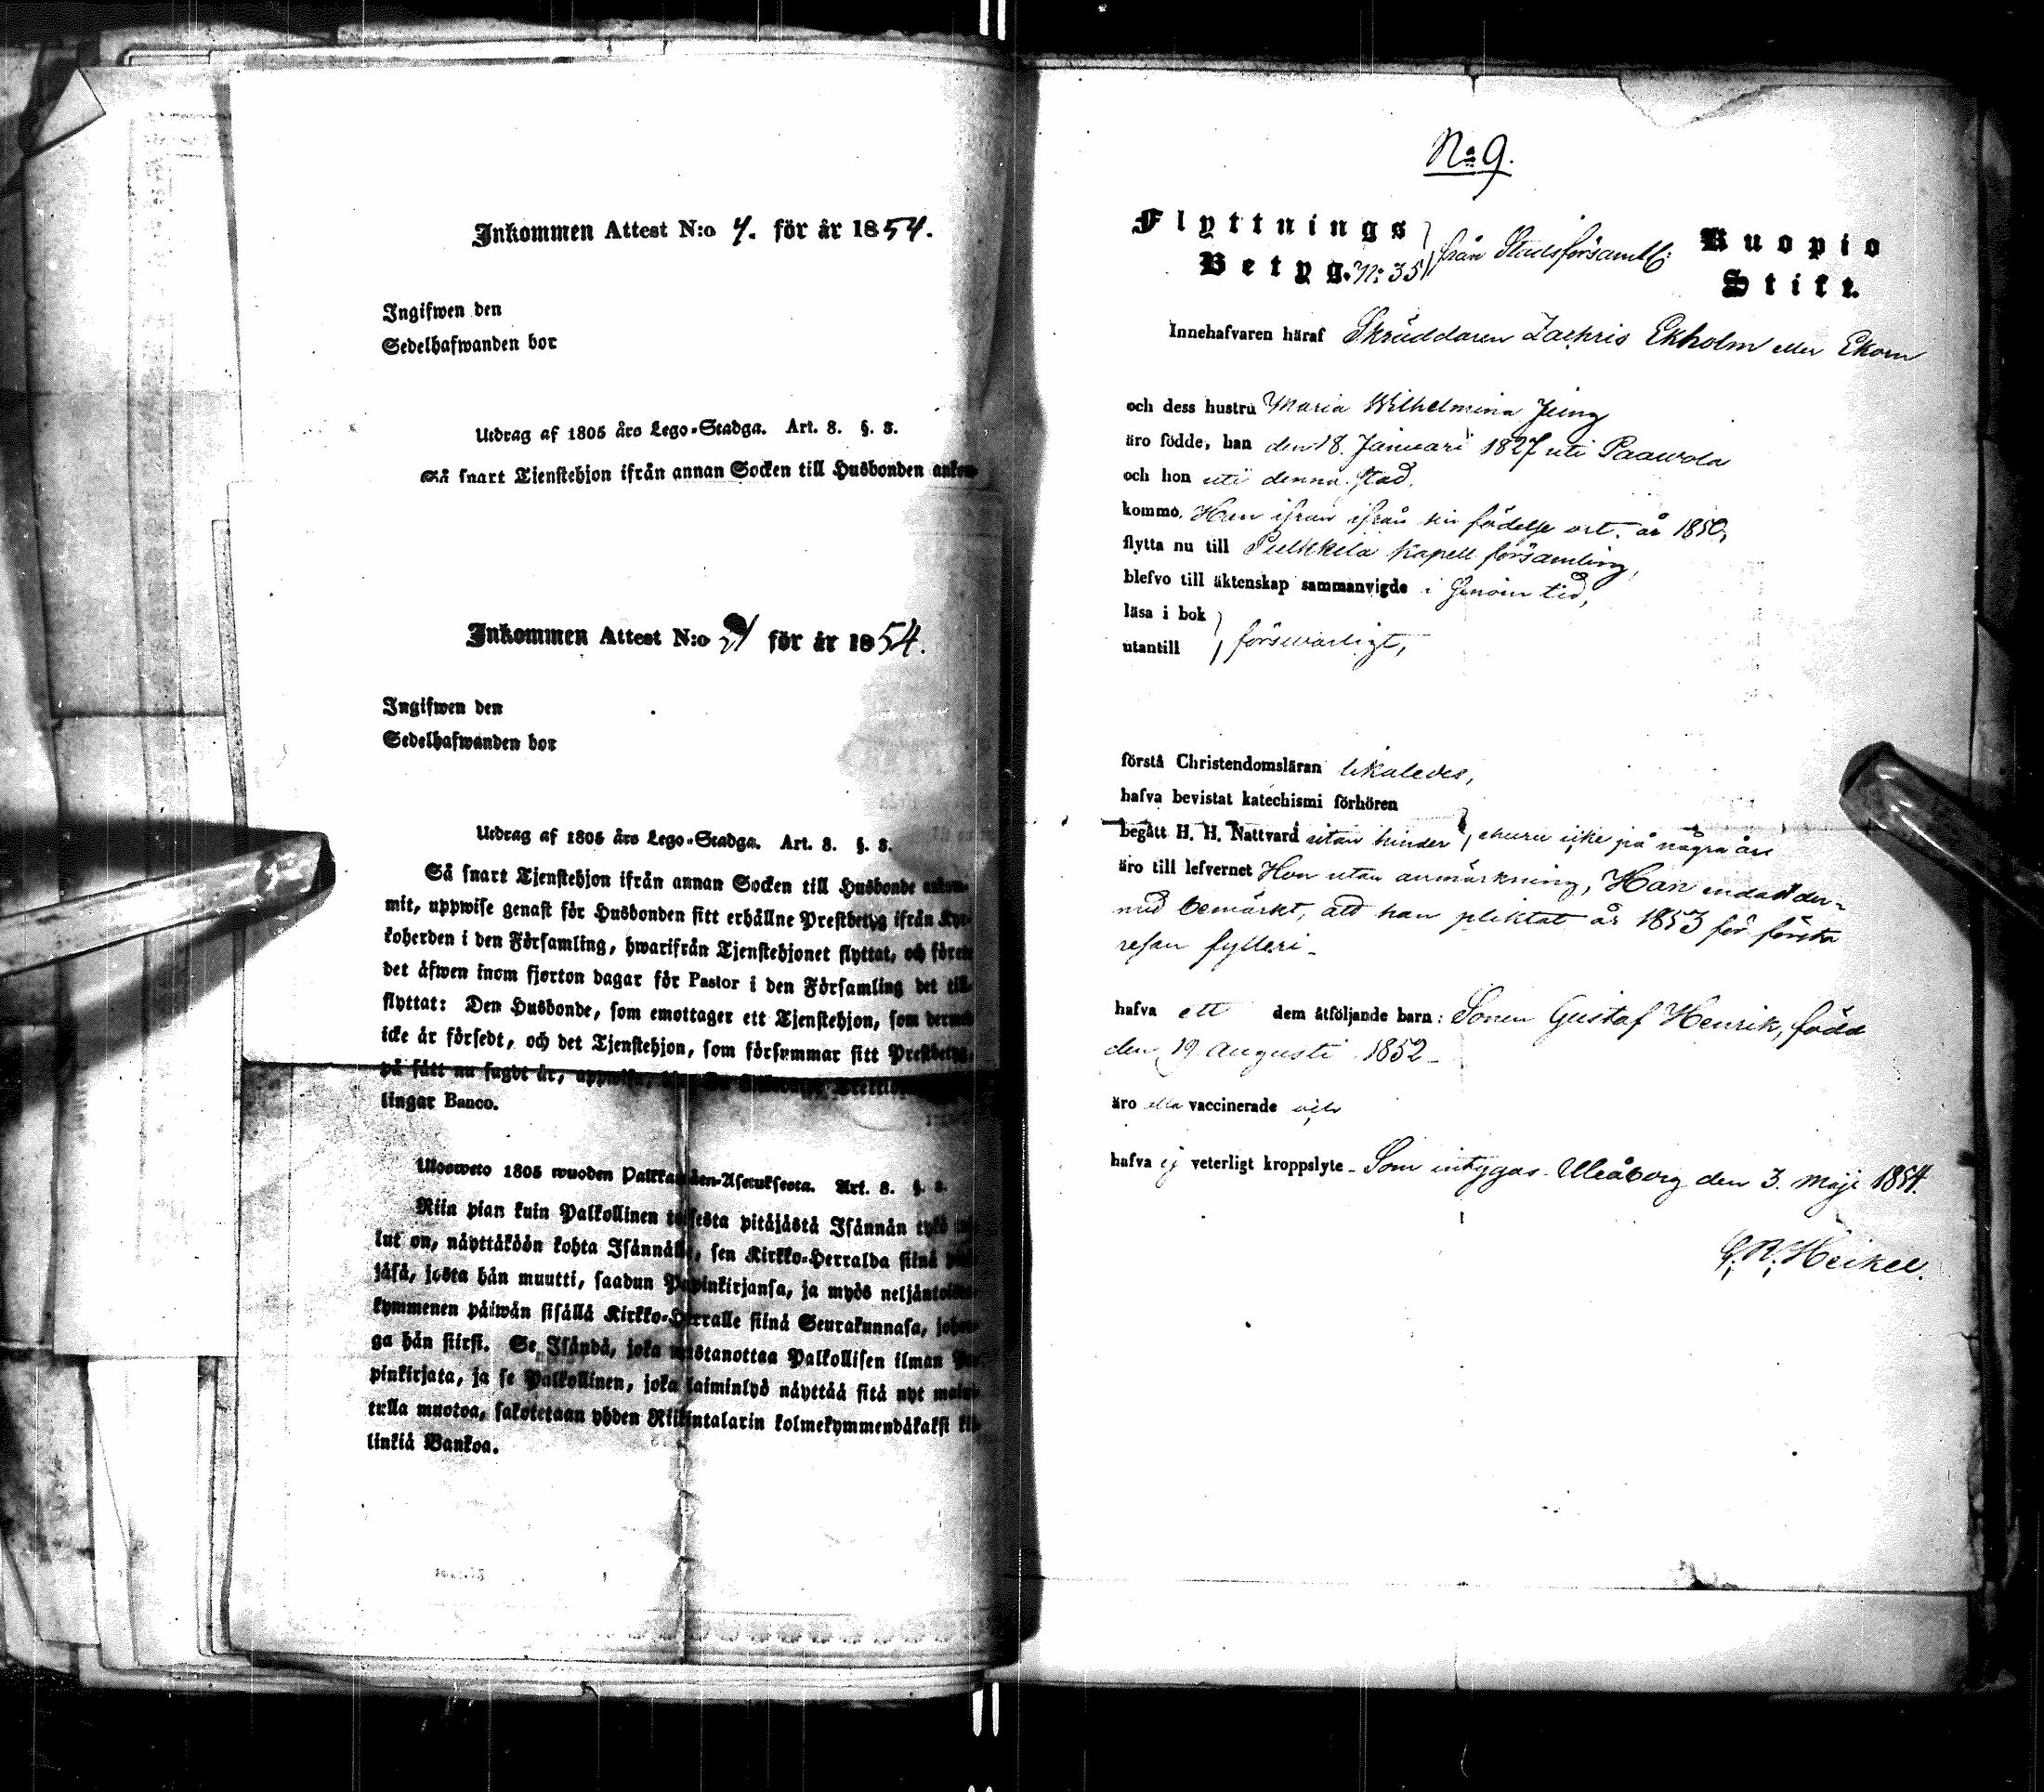 Inkommen Attest N:o 7. för år 1854.
Ingifwen den
Sedelhafwanden bor
Utdrag af 1805 års Lego-Stadga. Art. 8. §. 8.
Så snart Tjenstehjon ifrån annan Socken till Husbonden
Inkommen Attest N:o för år 1854.
Ingifwen den
Sedelhafwanden bor
Utdrag af 1805 års Lego-Stadga. Art. 8. §. 8.
Så snart Tjenstehjon ifrån annan Socken till Husbonde ankom-
mit, uppwise genast för Husbonden sitt erhållne Prestbetyg ifrån Kyr-
koherden i den Församling, hwarifrån Tjenstehjonet flyttat, och förete
det äfwen inom fjorton dagar för Pastor i den Församling det till-
flyttat: Den Husbonde, som emottager ett Tjenstehjon, som dermed
icke är försedt, och det Tjenstehjon, som försummar sitt Prestbetyg,
på sätt nu sagdt är, uppwisa,
lingar Banco.
Ulosweto 1805 wuoden Palkkawäen-Asetuksesta. Art. 8. §. 8.
Niin pian kuin Palkollinen toisesta pitäjästä Isännän tykö
lut on, näyttäköön kohta Isännälle, sen Kirkko-Herralda siinä
jäsä, josta hän muutti, saadun Papinkirjansa, ja myös neljäntoista-
kymmenen päiwän sisällä Kirkko-Herralle siinä Seurakunnasa, johon-
ga hän siirsi. Se Isändä, joka wastanottaa Palkollisen ilman Pa-
pinkirjata, ja se Palkollinen, joka laiminlyö näyttää sitä nyt mainit-
tulla muotoa, sakotetaan yhden Riikintalarin kolmekymmendäkaksi kil-
linkiä Bankoa.
No 9.
Flyttnings
Betyg. N: 35 från Stadsförsamlg: Kuopio
Stift.
Innehafvaren häraf Skräddaren Zachris Ekholm eller Ekom
och dess hustru Maria Wilhelmina Jung
äro födde, han den 18. Januari 1827 uti Paawola
och hon uti denna stad.
kommo, Han ifrån ifrån sin födelse ort. år 1850,
flytta nu till Pulkkila kapell församling,
blefvo till äktenskap sammanvigde i
läsa i bok
utantill försvarligt,
förstå Christendomsläran likaledes,
hafva bevistat katechismi förhören
begått H. H. Nattvard utan hinder, ehuru icke på några år
äro till lefvernet Hon utan anmärkning, Han endast der-
med bemärkt, att han pliktat år 1853 för första
resan fylleri-
hafva ett dem åtföljande barn: Sonen Gustaf Henrik, född
den 19 Augusti 1852-
äro alla vaccinerade
hafva ej veterligt kroppslyte - Som intygas - Uleåborg den 3. Maji 1854.
Heikel.